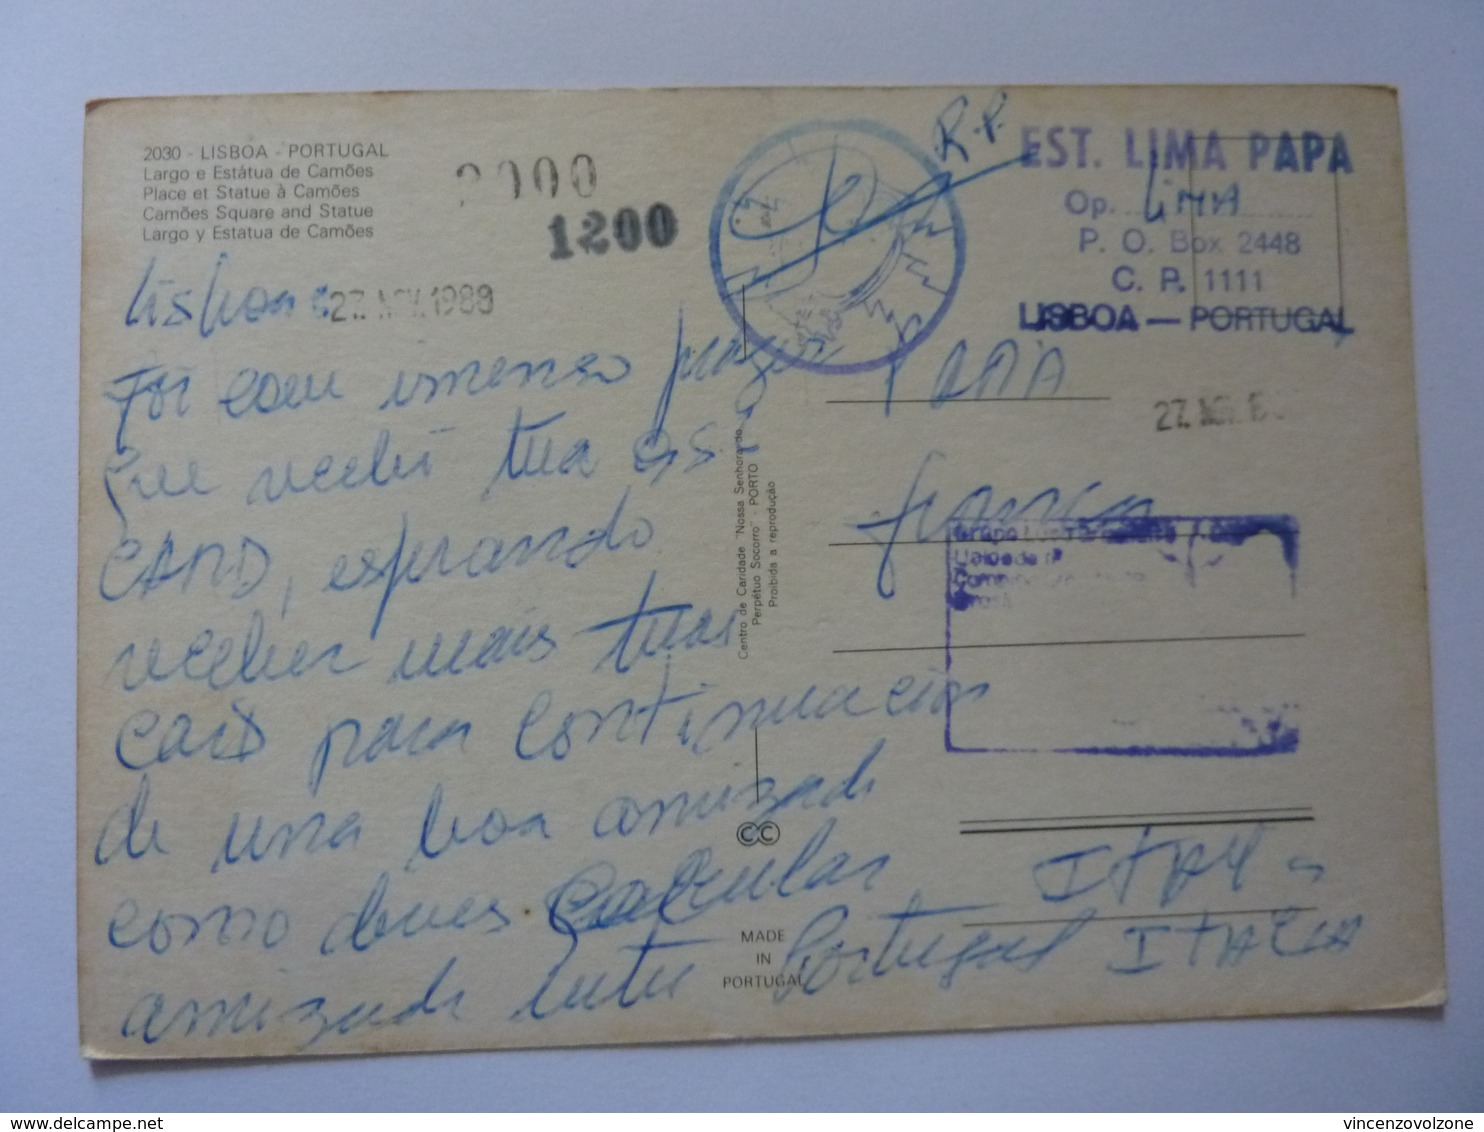 2030 - LISBOA - PORTUGAL
Largo e Estátua de Camões
Place et Statue à Camões
Camões Square and Statue
Largo y Estatua de Camões
2000
1200
R.P.
EST. LIMA PAPA
Op. LIMA
P. O. Box 2448
C. P. 1111
LISBOA — PORTUGAL
Lisboa 27. NOV. 1988
Foi com imenso prazer
que recebi tua QSL
CARD, esperando
receber mais tuas
cards para continuacion
de una boa amizade
como deves calcular
amizade entre Portugal ITALIA
PARA
27. NOV. 198
franca
Grupo
Centro de Caridade "Nossa Senhora do
Perpétuo Socorro" - PORTO
Proibida a reprodução
CC
ITALY -
MADE
IN
PORTUGAL
delcampe.net
vincenzovolzone